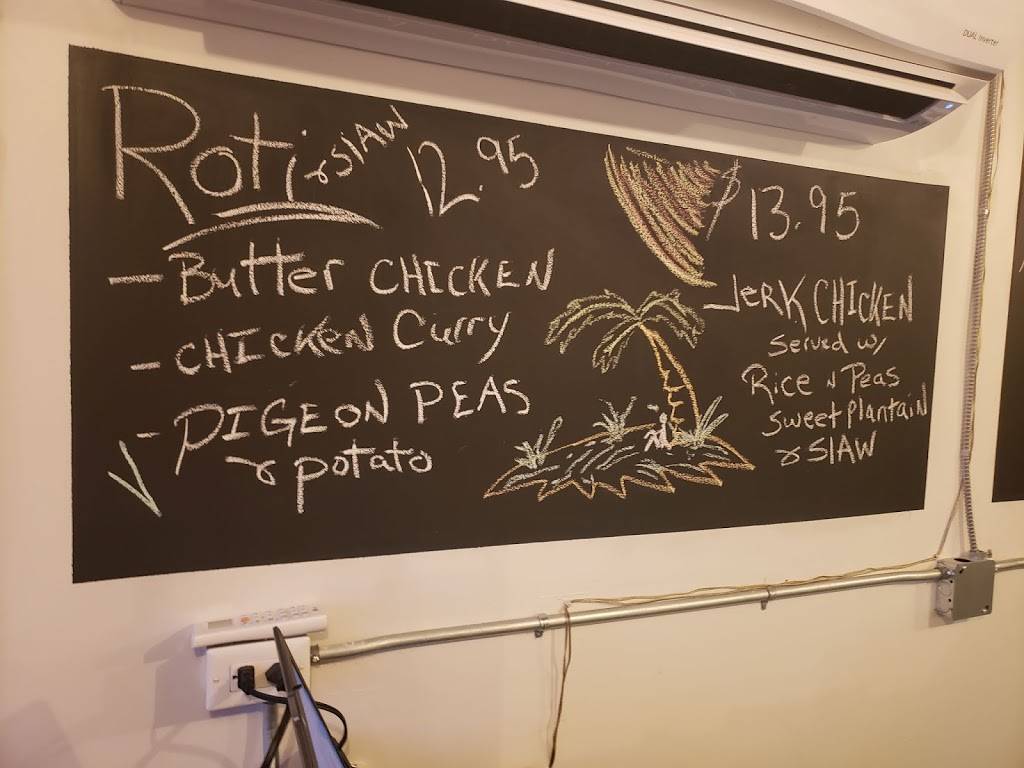 Roti & SLAW 12.95
- Butter CHICKEN
- CHICKEN Curry
- PIGEON PEAS
& potato
$13.95
JERK CHICKEN
Served w/
Rice N Peas
Sweet Plantain
& SLAW
DUAL Inverter